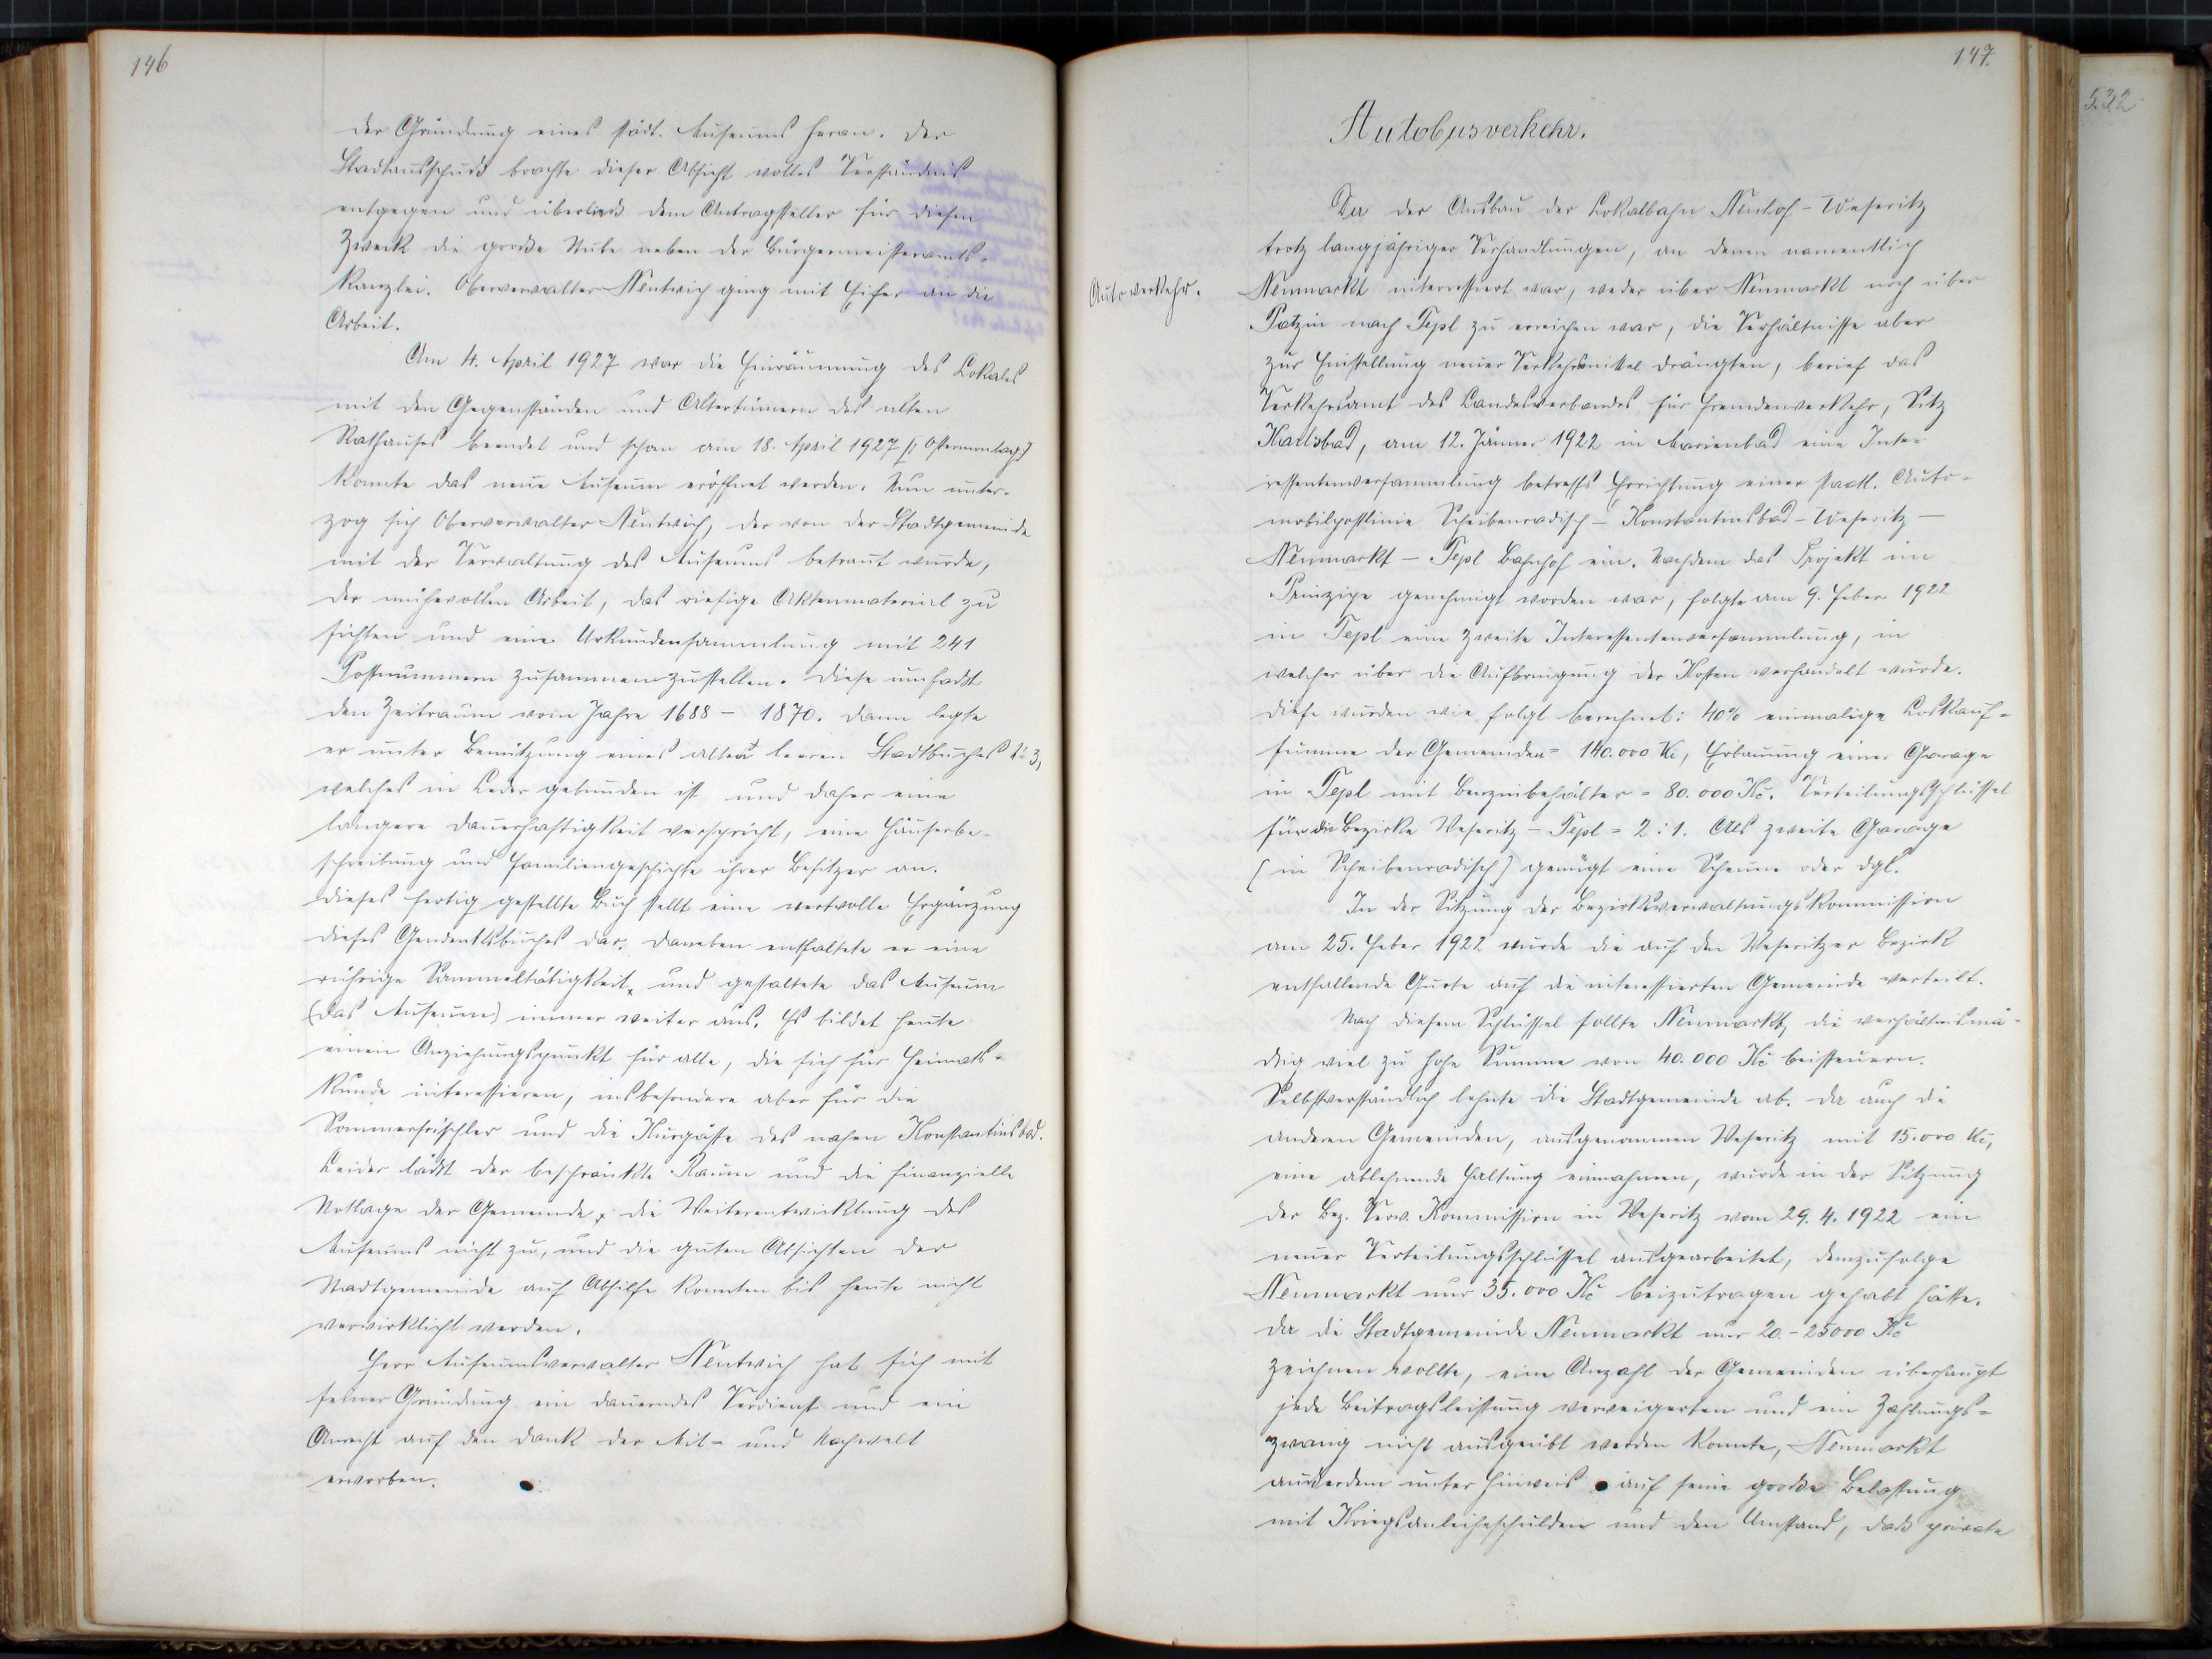 146
der Gründung eines städt. Museums heran. Der
Stadtausschuß brachte dieser Absicht volles Verständnis
entgegen und überließ dem Antragsteller für diesen
Zweck die große Stube neben der Bürgermeisteramts-
kanzlei. Oberverwalter Nentwich ging mit Eifer an die
Arbeit.
Am 4. April 1927 war die Einräumung des Lokales
mit den Gegenständen und Altertümern des alten
Rathauses beendet und schon am 18. April 1927 (Ostermontag)
konnte das neue Museum eröffnet werden. Nun unter-
zog sich Oberverwalter Nentwich, der von der Stadtgemeinde
mit der Verwaltung des Museums betraut wurde,
der mühevollen Arbeit, das riesige Aktenmaterial zu
sichten und eine Urkundensammlung mit 241
Postnummern zusammenzustellen. Diese umfaßt
den Zeitraum vom Jahre 1688 – 1870. Dann legte
er unter Benützung eines alten leeren Stadtbuches № 3,
welches in Leder gebunden ist und daher eine
längere Dauerhaftigkeit verspricht, eine Häuserbe-
schreibung und Familiengeschichte ihrer Besitzer an.
Dieses fertig gestellte Buch stellt eine wertvolle Ergänzung
dieses Gendenkbuches dar. Daneben entfaltete er eine
rührige Sammeltätigkeit, und gestaltete das Museum
(das Museum) immer weiter aus. Es bildet heute
einen Anziehungspunkt für alle, die sich für Heimats-
kunde interessieren, insbesondere aber für die
Sommerfrischler und die Kurgäste des nahen Konstantinsbad.
Leider läßt der beschränkte Raum und die finanzielle
Notlage der Gemeinde, die Weiterentwicklung des
Museums nicht zu, und die guten Absichten der
Stadtgemeinde auf Abhilfe konnten bis heute nicht
verwirklicht werden.
Herr Museumsverwalter Nentwich hat sich mit
seiner Gründung ein dauerndes Verdienst und ein
Anrecht auf den Dank der Mit- und Nachwelt
erworben.
147.
Autobusverkehr.
Da der Ausbau der Lokalbahn Neuhof – Weseritz
trotz langjähriger Verhandlungen, an denen namentlich
Autoverkehr.
Neumarkt interressiert war, weder über Neumarkt noch über
Potzin nach Tepl zu erreichen war, die Verhältnisse aber
zur Einstellung neuer Verkehrsmittel drängten, berief das
Verkehrsamt des Landesverbandes für Fremdenverkehr, Sitz
Karlsbad, am 12. Jänner 1922 in Marienbad eine Inte-
ressentenversammlung betreffs Errichtung einer staatl. Auto-
mobilpostlinie Scheibenradisch – Konstantinsbad – Weseritz –
Neumarkt – Tepl Bahnhof ein. Nachdem das Projekt im
Prinzipe genehmigt worden war, folgte am 9. Feber 1922
in Tepl eine zweite Interessentenversammlung, in
welcher über die Aufbringung der Kosten verhandelt wurde.
Diese wurden wie folgt berechnet: 40% einmalige Loskauf-
summe der Gemeinden = 140.000 Kč, Erbauung einer Garage
in Tepl mit Benzinbehälter = 80.000 Kč. Verteilungsschlüssel
für die Bezirke Weseritz – Tepl = 2 : 1. Als zweite Garage
(in Scheibenradisch) genügt eine Scheune oder dgl.
In der Sitzung der Bezirksverwaltungskommission
am 25. Feber 1922 wurde die auf den Weseritzer Bezirk
entfallende Quote auf die interessierten Gemeinde verteilt.
Nach diesem Schlüssel sollte Neumarkt, die verhältnismä-
ßig viel zu hohe Summe von 40.000 Kč beisteuern.
Selbstverständlich lehnte die Stadtgemeinde ab. Da auch die
anderen Gemeinden, ausgenommen Weseritz mit 15.000 Kč,
eine ablehnende Haltung einnahmen, wurde in der Sitzung
der Bez. Verw. Kommission in Weseritz vom 29.4.1922 ein
neuer Verteilungsschlüssel ausgearbeitet, demzufolge
Neumarkt nur 35.000 Kč beizutragen gehabt hätte.
Da die Stadtgemeinde Neumarkt nur 20.-25000 Kč
zeichnen wollte, eine Anzahl der Gemeinden überhaupt
jede Beitragsleistung verweigerten und ein Zahlungs-
zwang nicht ausgeübt werden konnte, Neumarkt
außerdem unter Hinweis auf seine große Belastung
mit Kriegsanleiheschulden und den Umstand, daß private
532